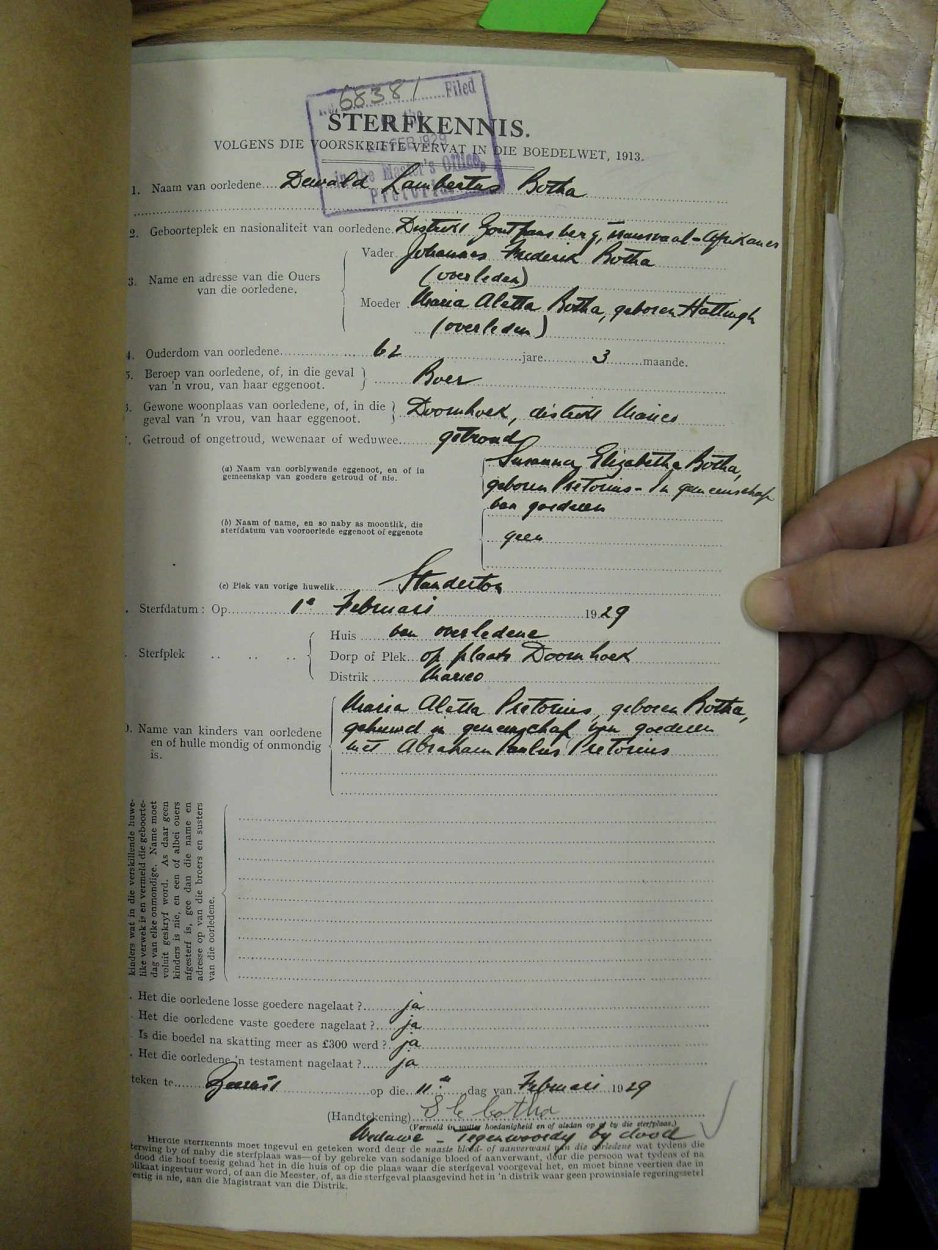 68381 Filed
FEB 1929
in the Master's Office,
Pretoria
STERFKENNIS.
VOLGENS DIE VOORSKRIFTE VERVAT IN DIE BOEDELWET, 1913.
1. Naam van oorledene.... Dewald Lambertus Botha
2. Geboorteplek en nasionaliteit van oorledene. Distrikt Zoutpansberg, Transvaal-Afrikaner
3. Name en adresse van die Ouers van die oorledene.
Vader Johannes Frederik Botha
(overleden)
Moeder Maria Aletta Botha, geboren Hattingh
(overleden)
4. Ouderdom van oorledene.... 62 jare 3 maande.
5. Beroep van oorledene, of, in die geval
van 'n vrou, van haar eggenoot. Boer
Gewone woonplaas van oorledene, of, in die
geval van 'n vrou, van haar eggenoot. Doornhoek, distrikt Marico
Getroud of ongetroud, wewenaar of weduwee.... getroud
(a) Naam van oorblywende eggenoot, en of in
gemeenskap van goedere getroud of nie.
Susanna Elizabetha Botha,
geboren Pretorius - In gemeenschap
van goederen
(b) Naam of name, en so naby as moontlik, die
sterfdatum van vooroorlede eggenoot of eggenote
geen
(c) Plek van vorige huwelik.... Standerton
Sterfdatum: Op.... 1e Februari 1929
Sterfplek
Huis .... van overledene
Dorp of Plek.. op plaats Doornhoek
Distrik Marico
Name van kinders van oorledene
en of hulle mondig of onmondig
is.
Maria Aletta Pretorius, geboren Botha,
gehuwd in gemeenschap van goederen
met Abraham Paulus Pretorius
kinders wat in die verskillende huwe-
like verwek is en vermeld die geboorte-
dag van elke onmondige. Name moet
voluit geskryf word. As daar geen
kinders is nie, en een of albei ouers
afgesterf is, gee dan die name en
adresse op van die broers en susters
van die oorledene.
Het die oorledene losse goedere nagelaat?.... ja
Het die oorledene vaste goedere nagelaat?.... ja
Is die boedel na skatting meer as £300 werd?.. ja
Het die oorledene 'n testament nagelaat?.... ja
teken te.... Zeerust op die 11de dag van Februari 1929
(Handtekening) S E botha
(Vermeld in hoedanigheid en of aldan op by die sterfplaas.)
Weduwe - Tegenwoordig by dood
Hierdie sterfkennis moet ingevul en geteken word deur die naaste bloed- of aanverwant van die oorledene wat tydens die
sterwing by of naby die sterfplaas was—of by gebreke van sodanige bloed of aanverwant, deur die persoon wat tydens die
dood die hoof toesig gehad het in die huis of op die plaas waar die sterfgeval voorgeval het, en moet binne veertien dae in
plikaat ingestuur word, of aan die Meester, of, as die sterfgeval plaasgevind het in 'n distrik waar geen prowinsiale regeringsetel
vestig is nie, aan die Magistraat van die Distrik.